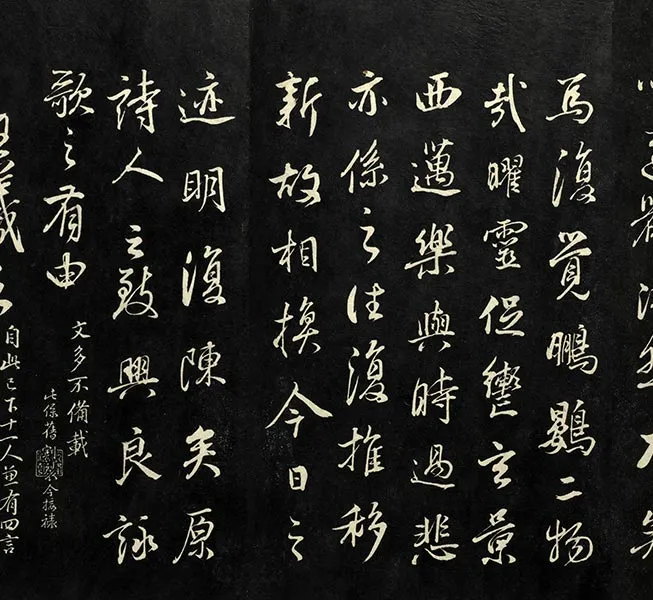 焉復覺鵬鷃二物
哉曜靈促轡玄景
西邁樂與時過悲
亦係之往復推移
新故相換今日之
迹明復陳矣原
詩人之致興良詠
歌之有由
文多不備載
此係舊
今接
自此已下十一人並有四言